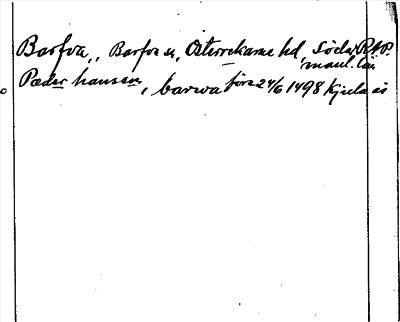 Barfva,, Barfva sn, Österrekarne hd, Söder- R.A.P.
manl. län
Pæder hanssen, barwa före 24/6 1498 Kjula ás